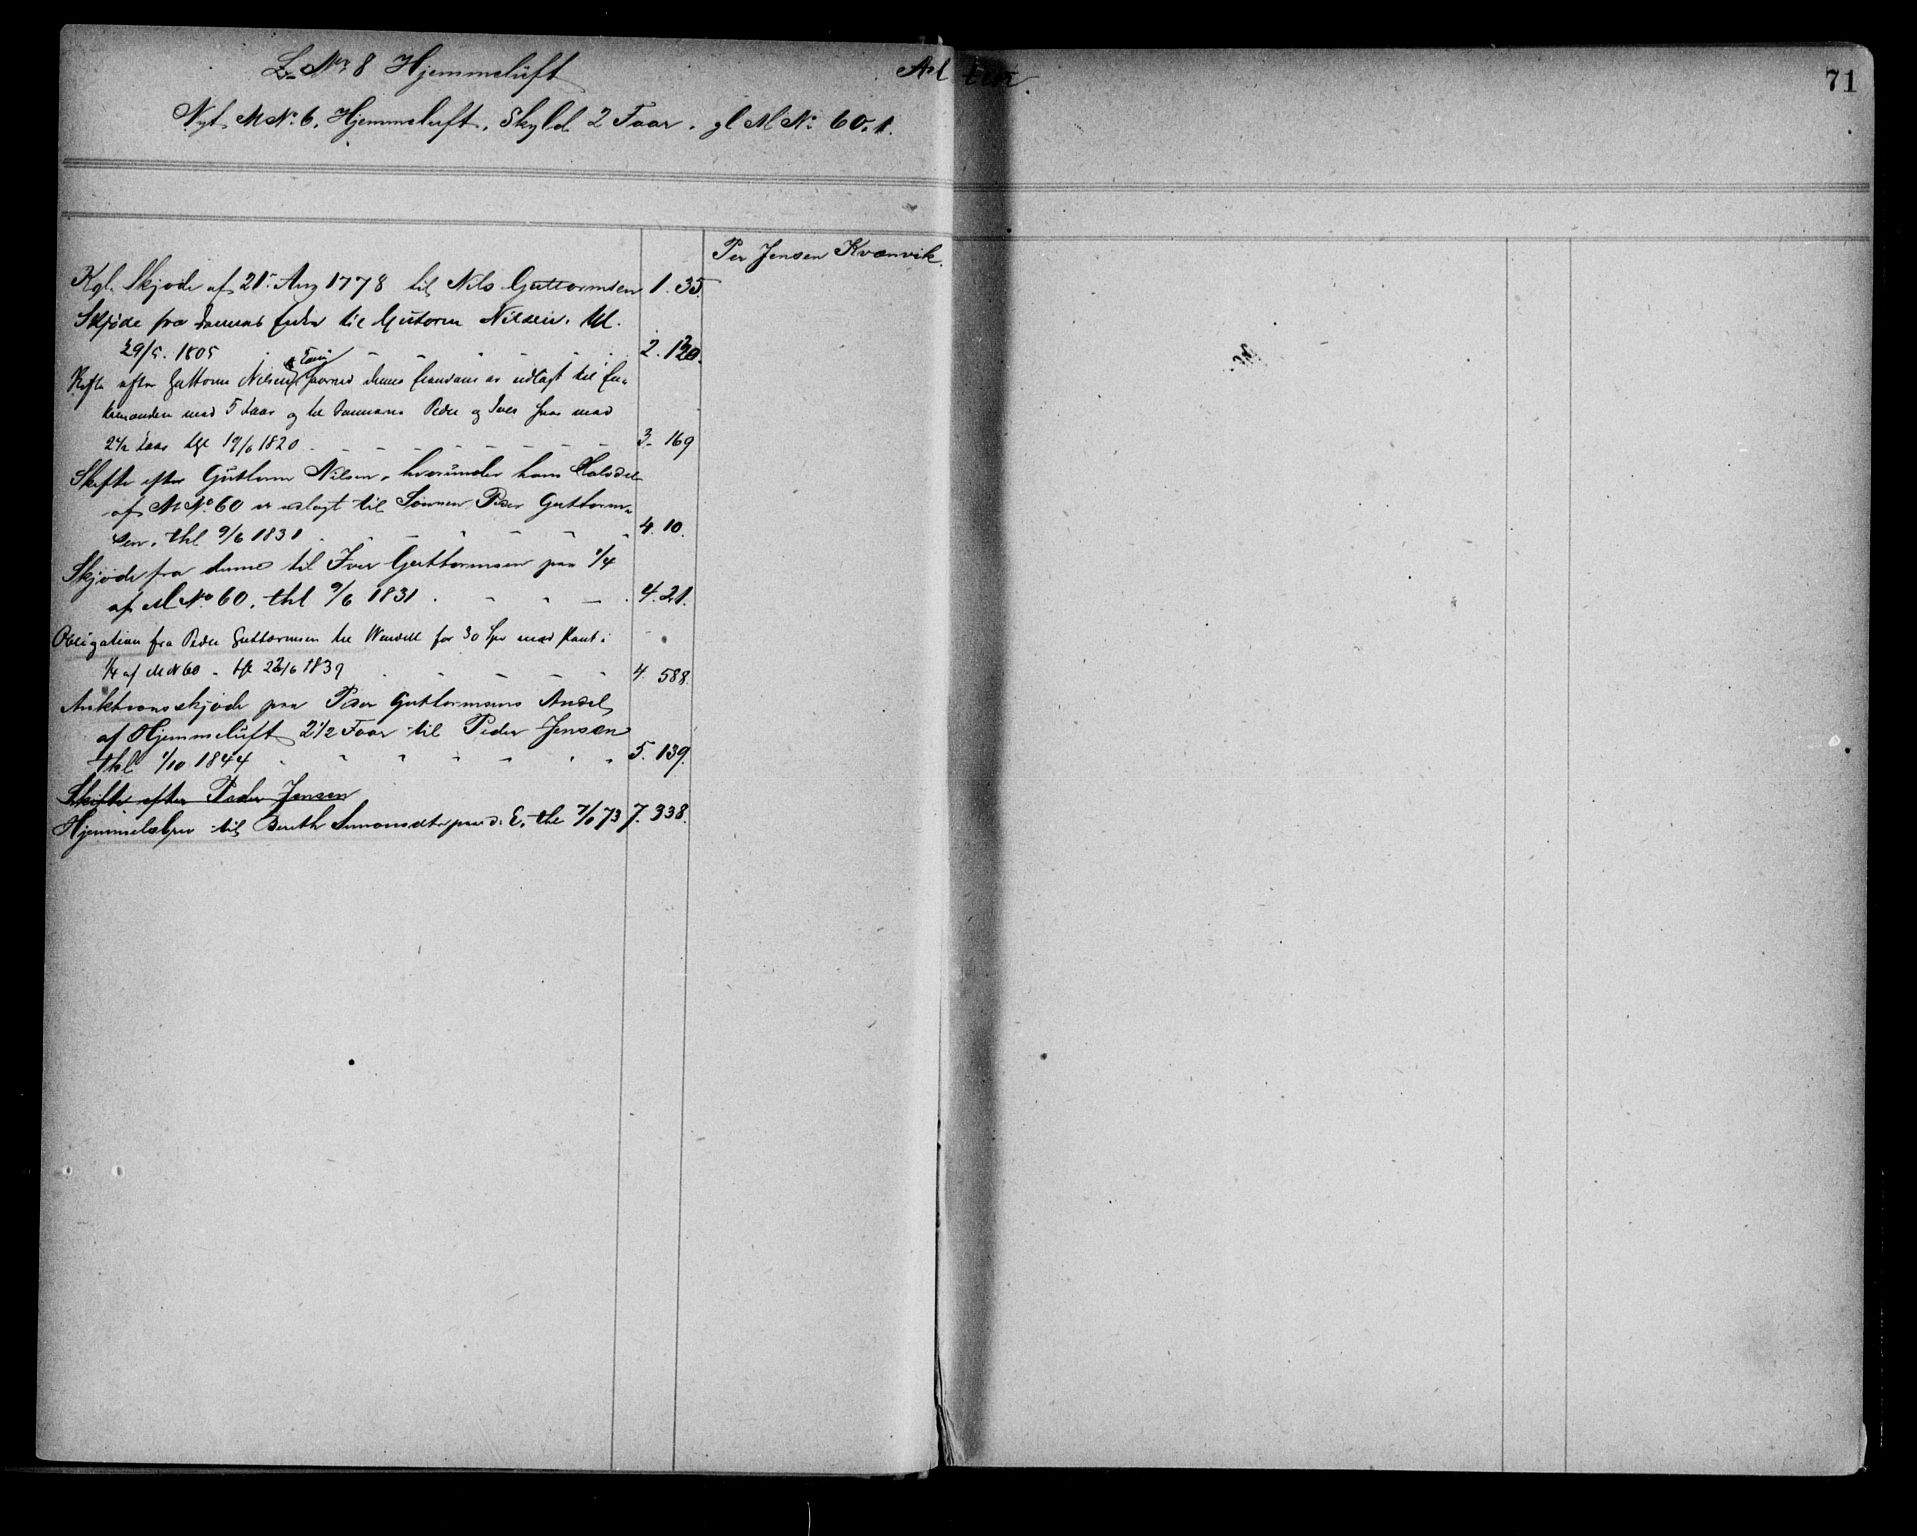 L. Nr. 8 Hjemmeluft
Alten.
71
Nyt M No. 6. Hjemmeluft. Skyld 2 Faar. gl M No. 60.1.
Per Jensen Kvænvik.
Kgl. Skjøde af 21. Aug 1778 til Nils Guttormsen 1. 35.
Skjøde fra Enke til Gutorm Nilsen. thl.
29/5. 1805 2. 120.
efter Guttorm Nilsens er udlagt til En-
kemanden med 5 Faar og til Sønnerne Peder og Iver hver med
2 1/2 Faar thl 19/6 1820 3. 169
Skifte efter Guttorm Nilsen, hvorunder hans Halvdel
af M No. 60 er udlagt til Sønnen Peder Guttorm-
sen. thl 9/6 1831 4. 10.
Skjøde fra denne til Iver Guttormsen paa 1/4
af M No 60. thl 9/6 1831 4. 21.
Obligation fra Peder Guttormsen til Wendell for 30 Spd med Pant i
1/4 af M N 60 - thl 22/6 1839 4. 588.
Auktionsskjøde paa Peder Guttormsens Andel
af Hjemmeluft 2 1/2 Faar til Peder Jensen
thl 1/10 1844 5. 139.
Skifte efter Peder Jensen
Hjemmelsbrev til Bereth Simonsdtr paa d. E. thl 73 7. 338.